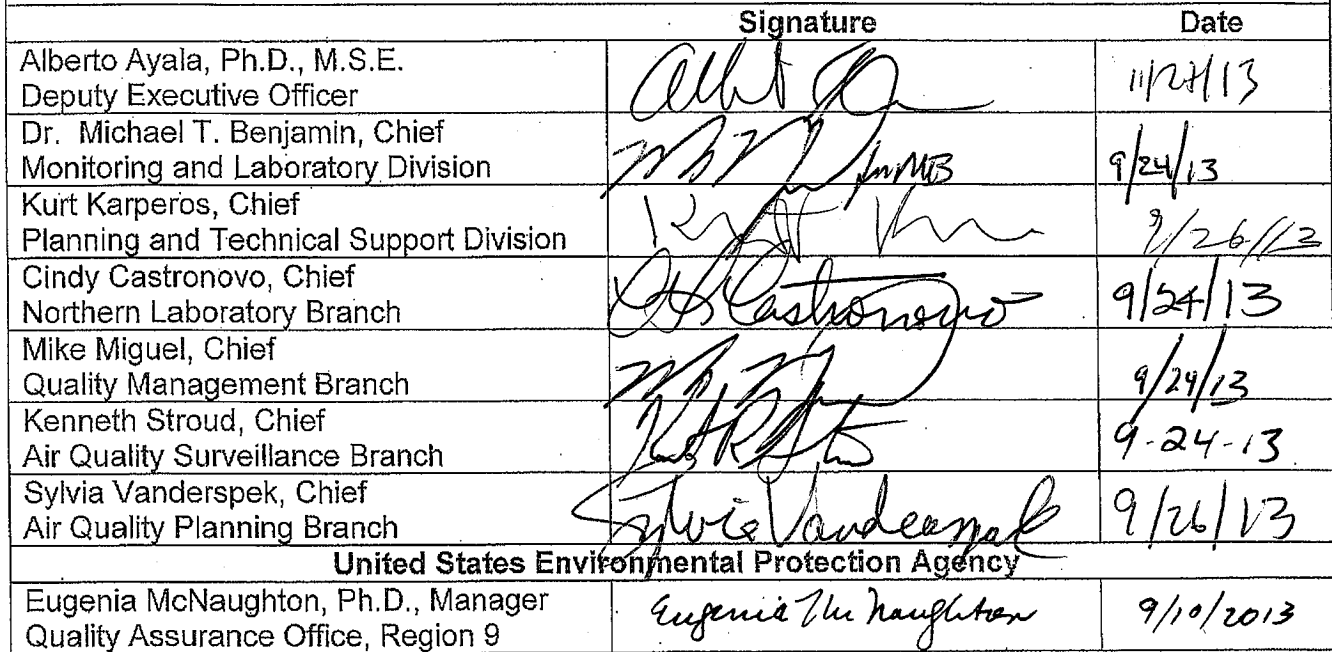 Signature Date
Alberto Ayala, Ph.D., M.S.E.
Deputy Executive Officer
Dr. Michael T. Benjamin, Chief
Monitoring and Laboratory Division for MB 9/24/13
Kurt Karperos, Chief
Planning and Technical Support Division 9/26/13
Cindy Castronovo, Chief
Northern Laboratory Branch Castronovo 9/24/13
Mike Miguel, Chief
Quality Management Branch 9/24/13
Kenneth Stroud, Chief
Air Quality Surveillance Branch 9-24-13
Sylvia Vanderspek, Chief
Air Quality Planning Branch Sylvia Vanderspek 9/26/13
United States Environmental Protection Agency
Eugenia McNaughton, Ph.D., Manager
Quality Assurance Office, Region 9 Eugenia McNaughton 9/10/2013